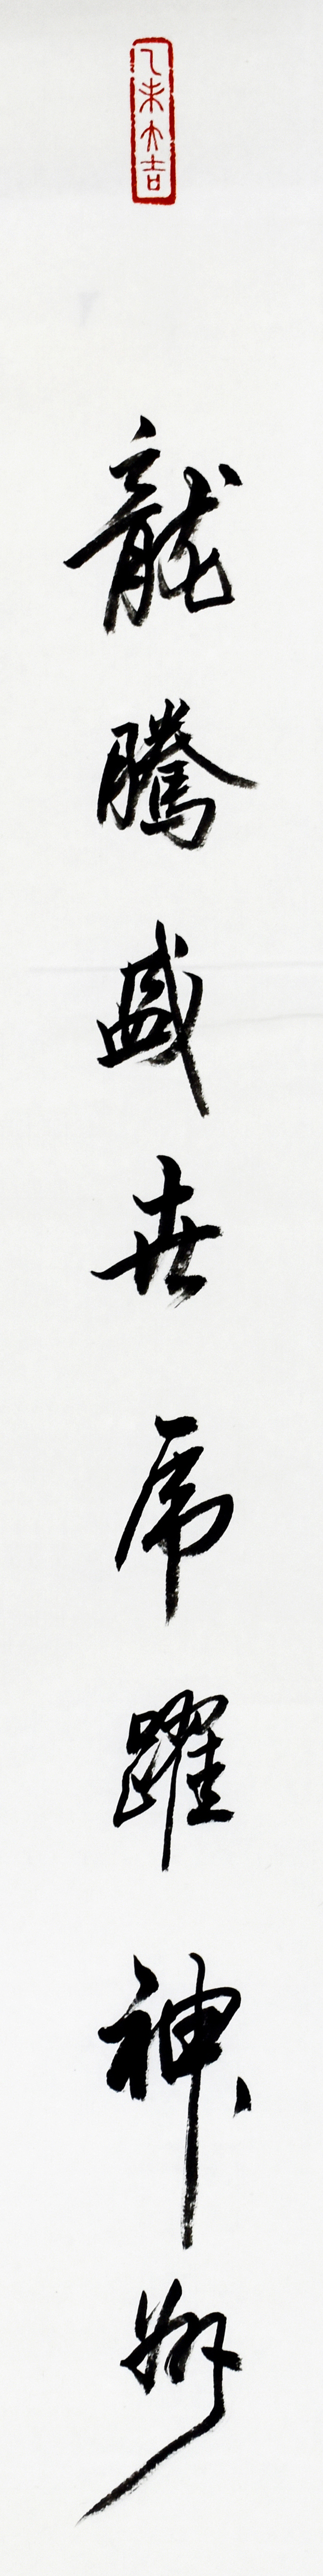 乙未大吉
龍騰盛世虎躍神州